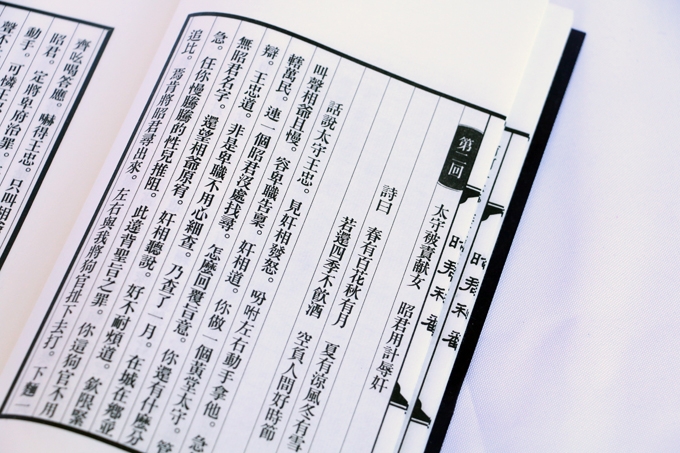 昭君和番
第二回
太守被責献女　昭君用計辱奸
詩曰　春有百花秋有月　夏有涼風冬有雪
若還四季不飲酒　空負人間好時節
話説太守王忠。見奸相發怒。吩咐左右動手拿他。急
叫聲相爺且慢。容卑職告稟。奸相道。你做一個黃堂太守。管
轄萬民。連一個昭君沒處找尋。怎麼回覆旨意。你還有什麼分
辯。王忠道。非是卑職不用心細查。乃查了一月。在城在鄉並
無昭君名字。還望相爺原宥。奸相聽説。好不耐煩道。欽限緊
急。任你慢騰騰的性兒推阻。此違背聖旨之罪。你這狗官不用
追比。焉肯將昭君尋出來。左右與我將狗官扯下去打。下麵一
齊吆喝答應。嚇得王忠。只叫相爺
動手。定將卑府治罪。
昭君。可憐